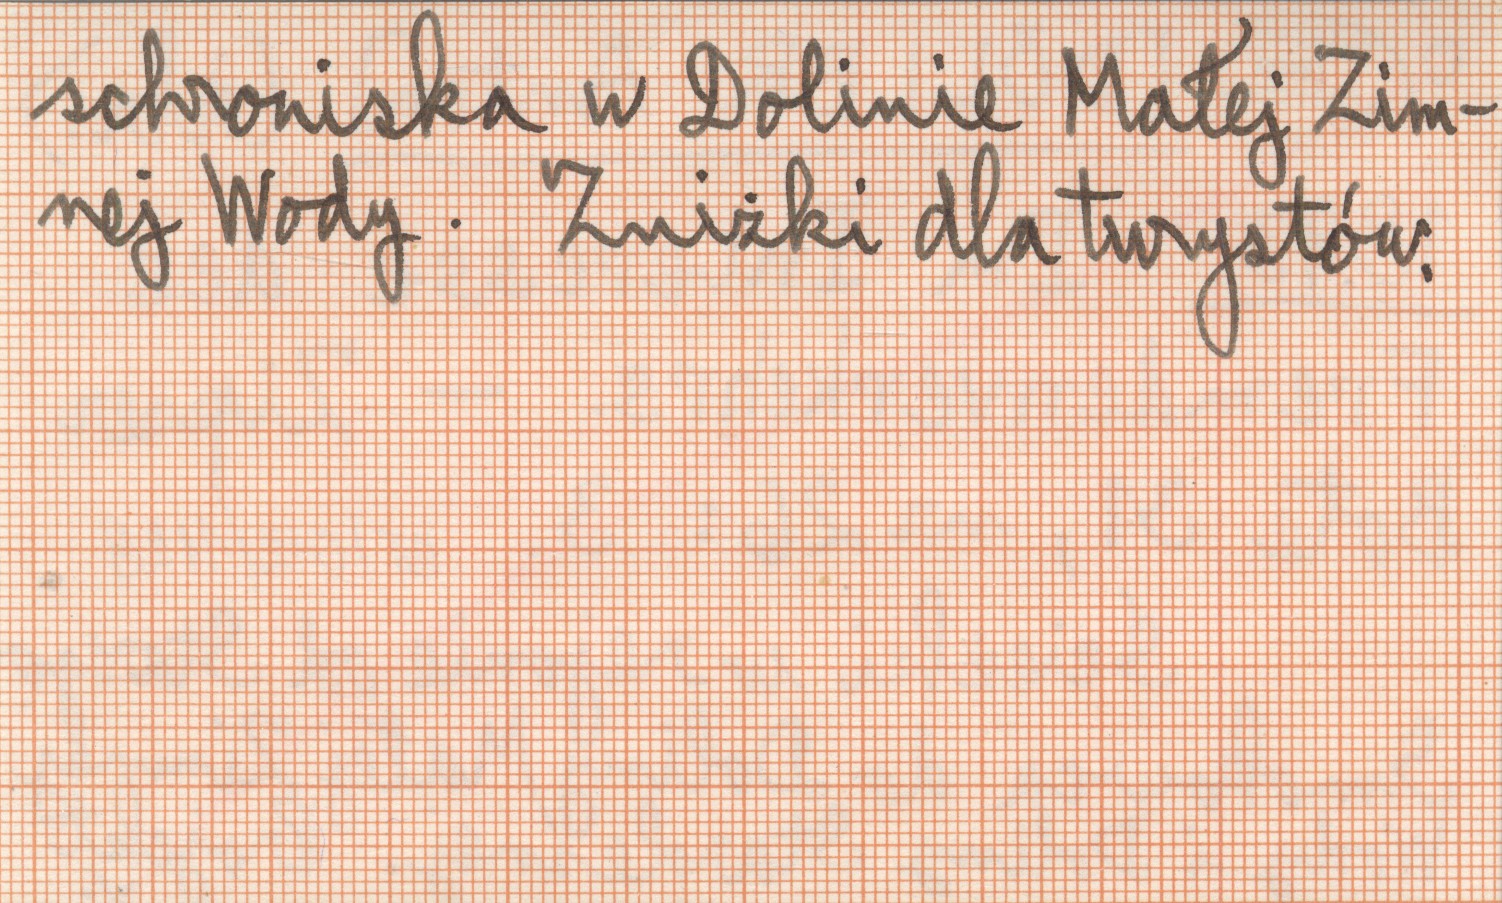 schroniska w Dolinie Małej Zim-
nej Wody. Zniżki dla turystów: